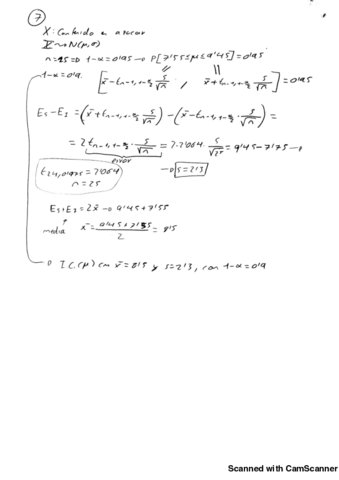 7
X: Contenido en azúcar
X ~> N(μ, σ)
n=25 => 1-α=0'95 -> P[7'55≤μ≤9'45]=0'95
1-α=0'9.
[x̄ - t n-1, 1-α/2 s/√n , x̄ + t n-1, 1-α/2 s/√n] = 0'95
Es - EI = (x̄ + t n-1, 1-α/2 s/√n) - (x̄ - t n-1, 1-α/2 · s/√n) =
= 2 t n-1, 1-α/2 · s/√n = 2·2'064 · s/√25 = 9'45 - 7'55 ->
error
t24, 0'975 = 2'064
n=25
-> s=2'3
Es + EI = 2x̄ -> 9'45 + 7'55
media
x̄ = 9'45 + 7'55 / 2 = 8'5
-> I.C.(μ) con x̄ = 8'5 y s=2'3, con 1-α=0'9
Scanned with CamScanner